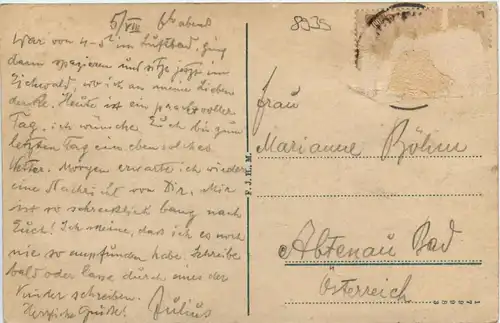 5/VIII 6h abends
War von 4-5h im Luftbad, ging
dann spazieren und sitze jetzt im
Eichwald, wo ich an meine Lieben
denke. Heute ist ein prachtvoller
Tag, ich wünsche Euch bis zum
letzten Tag ein ebensolches
Wetter. Morgen erwarte ich wieder
eine Nachricht von Dir. Mir
ist so schrecklich bang nach
Euch! Ich meine, dass ich es noch
nie so empfunden habe. Schreibe
bald oder lasse durch eines der
Kinder schreiben.
Herzliche Grüsse! Julius
F. J. H. M.
8935
Frau
Marianne Böhm
Abtenau Bad
Österreich